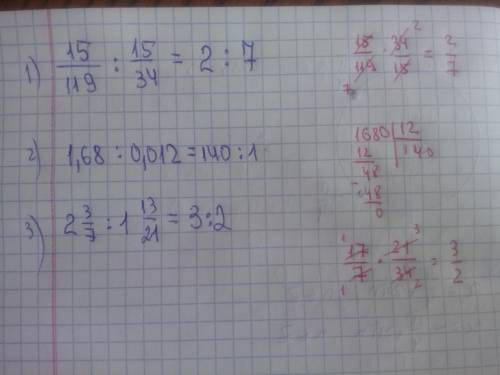 1) 15/119 : 15/34 = 2 : 7
15/119 · 34/15 = 2/7
2 7
2) 1,68 : 0,012 = 140 : 1
1680 | 12
12 | 140
48
- 48
0
3) 2 3/7 : 1 13/21 = 3 : 2
17/7 · 21/34 = 3/2
1 3
1 2